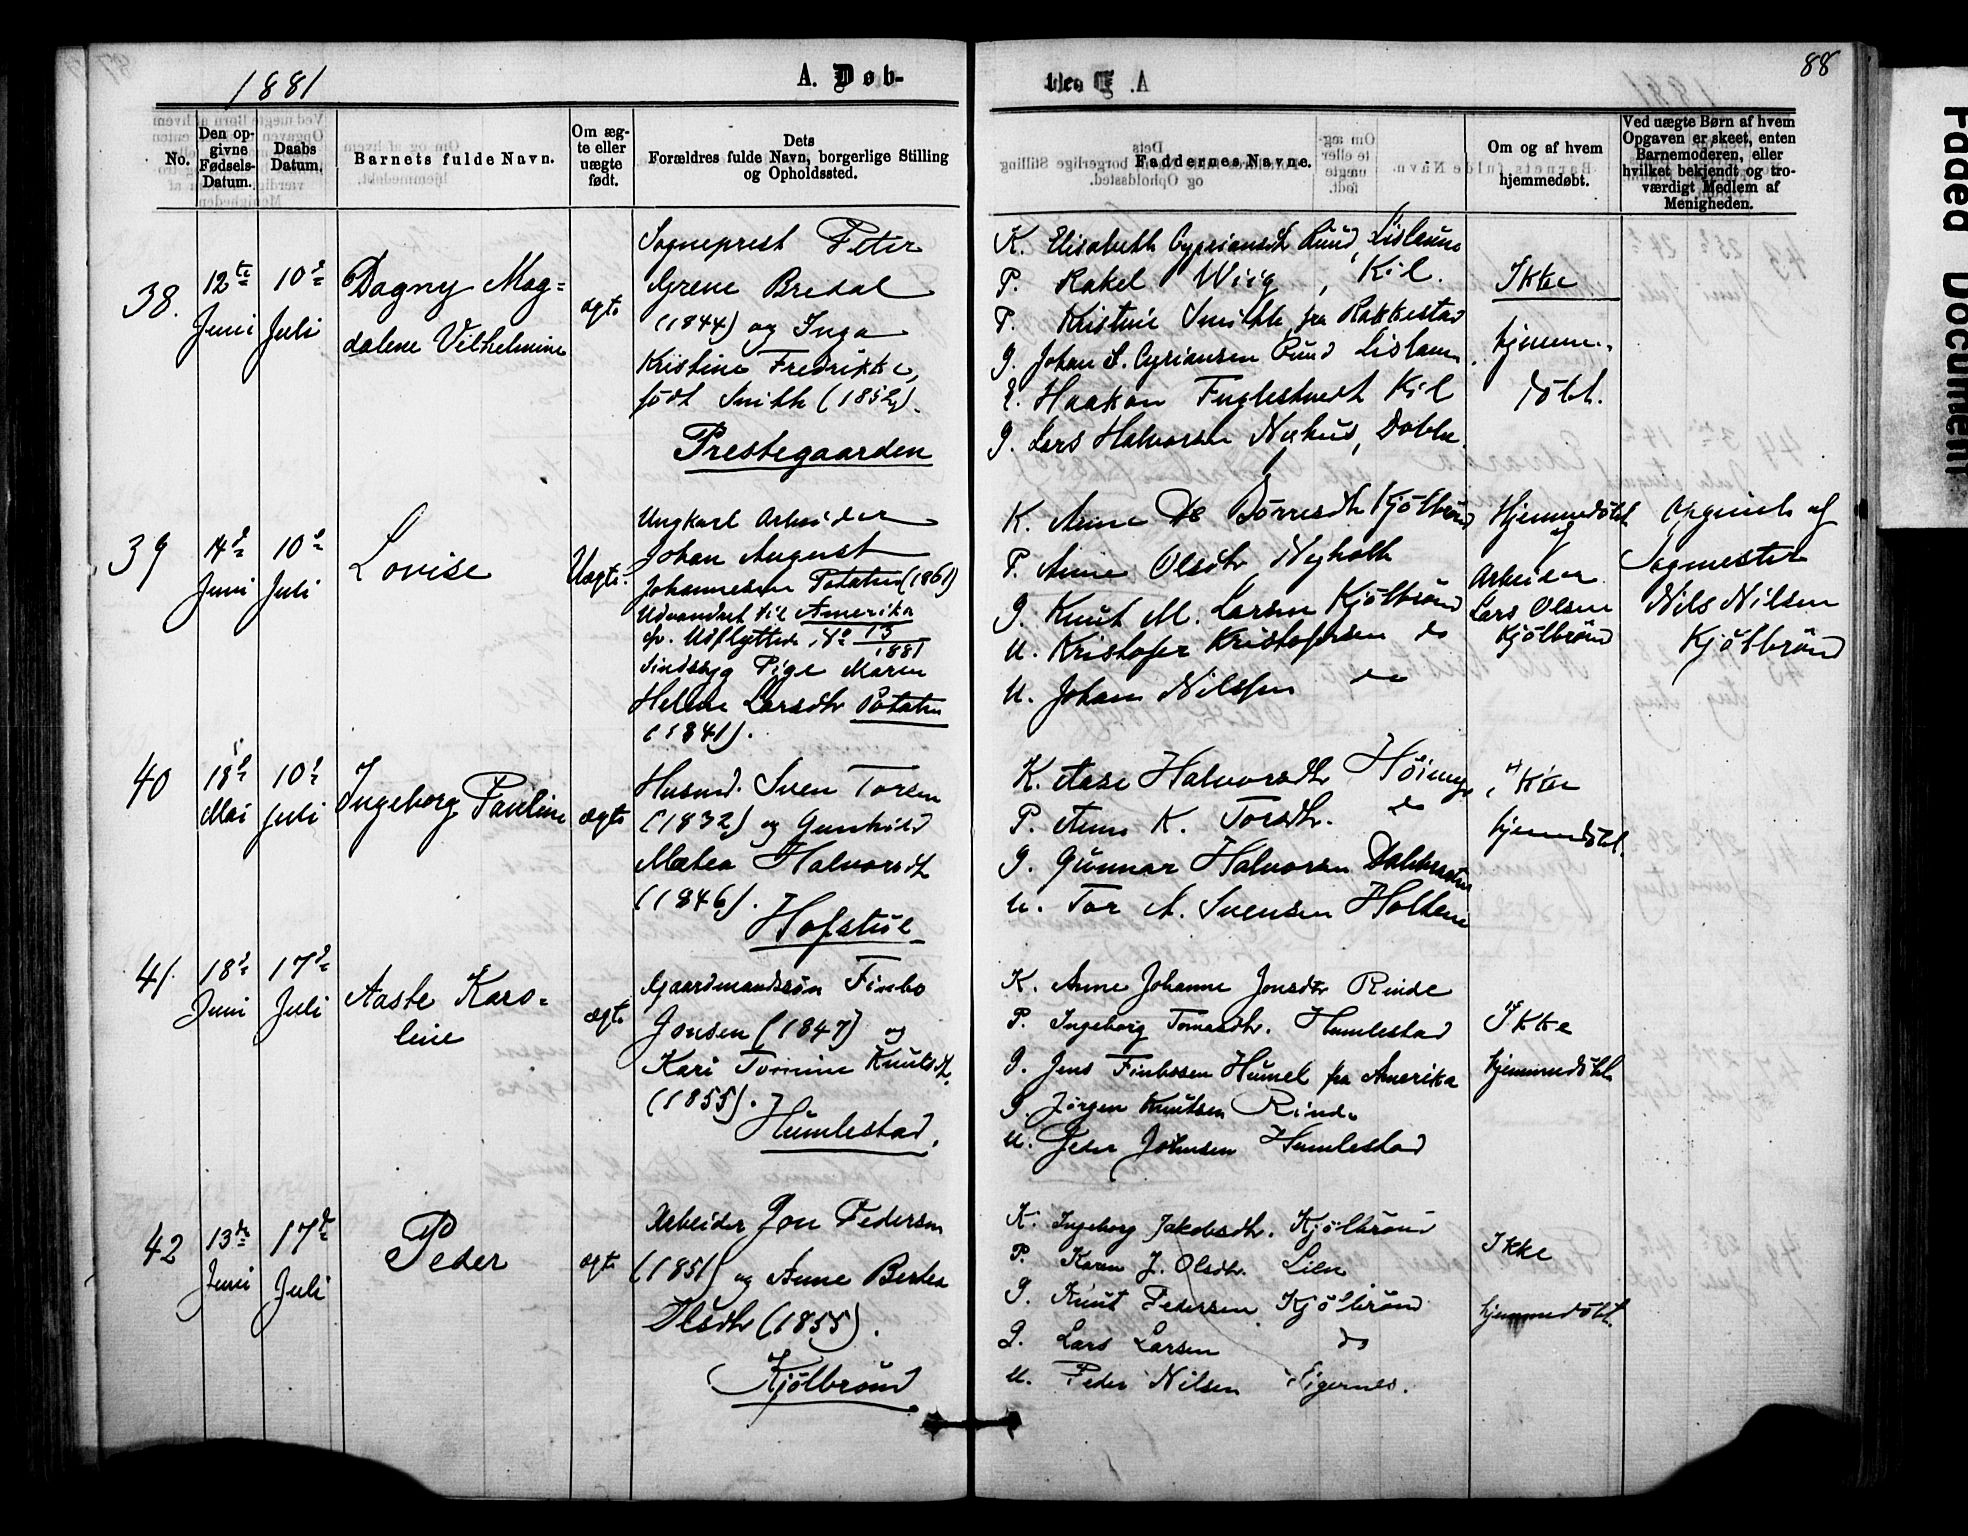 1881
A. Døb-
88
No.
Den op-
givne
Fødsels-
Datum.
Daabs
Datum.
Barnets fulde Navn.
Om æg-
te eller
uægte
født.
Dets
Forældres fulde Navn, borgerlige Stilling
og Opholdssted.
Faddernes Navne.
Om og af hvem
hjemmedøbt.
Ved uægte Børn af hvem
Opgaven er skeet, enten
Barnemoderen, eller
hvilket bekjendt og tro-
værdigt Medlem af
Menigheden.
38.
12te
Juni
10de
Juli
Dagny Mag-
dalene Vilhelmine
ægte
Sogneprest Peter
Grene Bredal
(1844) og Inga
Kristine Fredrikke,
født Smith
Prestegaarden
K. Elisabeth Cypriansdtr Rund,
P. Rakel Wiig, Kil.
P. Kristine Smith fra Rakkestad
G. Johan S. Cypriansen Rund
Haakon Fuglestvedt Kil
G. Lars Halvorsen Nyhus,
Ikke
hjemme-
døbt.
39
14de
Juni
10de
Juli
Lovise
Uægte
Ungkarl Arbeider
Johan August
Johannesen Potaten (1861)
Udvandret til Amerika
cfr. Udflyttede No 13
1881
Sindssyg Pige Maren
Helene Larsdtr Potaten
(1841).
K. Anne Børresdtr Kjølbrønd
P. Anne Olsdtr Nyholt
G. Knut M. Larsen Kjølbrønd
U. Kristofer Kristofersen do
U. Johan Nilssen do
Hjemmedøbt
af
Arbeider
Lars Olsen
Kjølbrønd
Opgivet af
Sogmester
Nils Nilsen
Kjølbrønd
40
18de
Mai
10de
Juli
Ingeborg Pauline
ægte
Husmd. Sven Torsen
(1832) og Gunhild
Mathea Halvorsdtr
(1846).
Hofstul
K. Aase Halvorsdtr
P. Anne K. Torsdtr. do
G. Gunnar Halvorsen
U. Tor A. Svensen Holtene
Ikke
hjemmedøbt.
41.
18de
Juni
17de
Juli
Aaste Karo-
line
ægte
Gaardmandssøn Finbo
Jonsen (1847) og
Kari Tomine Knutsdtr.
(1855).
Humlestad.
K. Anne Johanne Jonsdtr Rinde
P. Ingeborg Tomasdtr. Humlestad
G. Jens Finbosen Humel fra Amerika
G. Jørgen Knutsen Rinde
U. Peder Johnsen Humlestad
Ikke
hjemmedøbt
42
13de
Juni
17de
Juli
Peder
ægte
Arbeider Jon Pedersen
(1851) og Anne Bertea
Olsdtr (1855).
Kjølbrønd
K. Ingeborg Jakobsdtr. Kjølbrønd
P. Karen J. Olsdtr. Lien
G. Knut Pedersen Kjølbrønd
G. Lars Larsen do
U. Peder Nilsen Eigernes.
Ikke
hjemmedøbt.
Faded Document